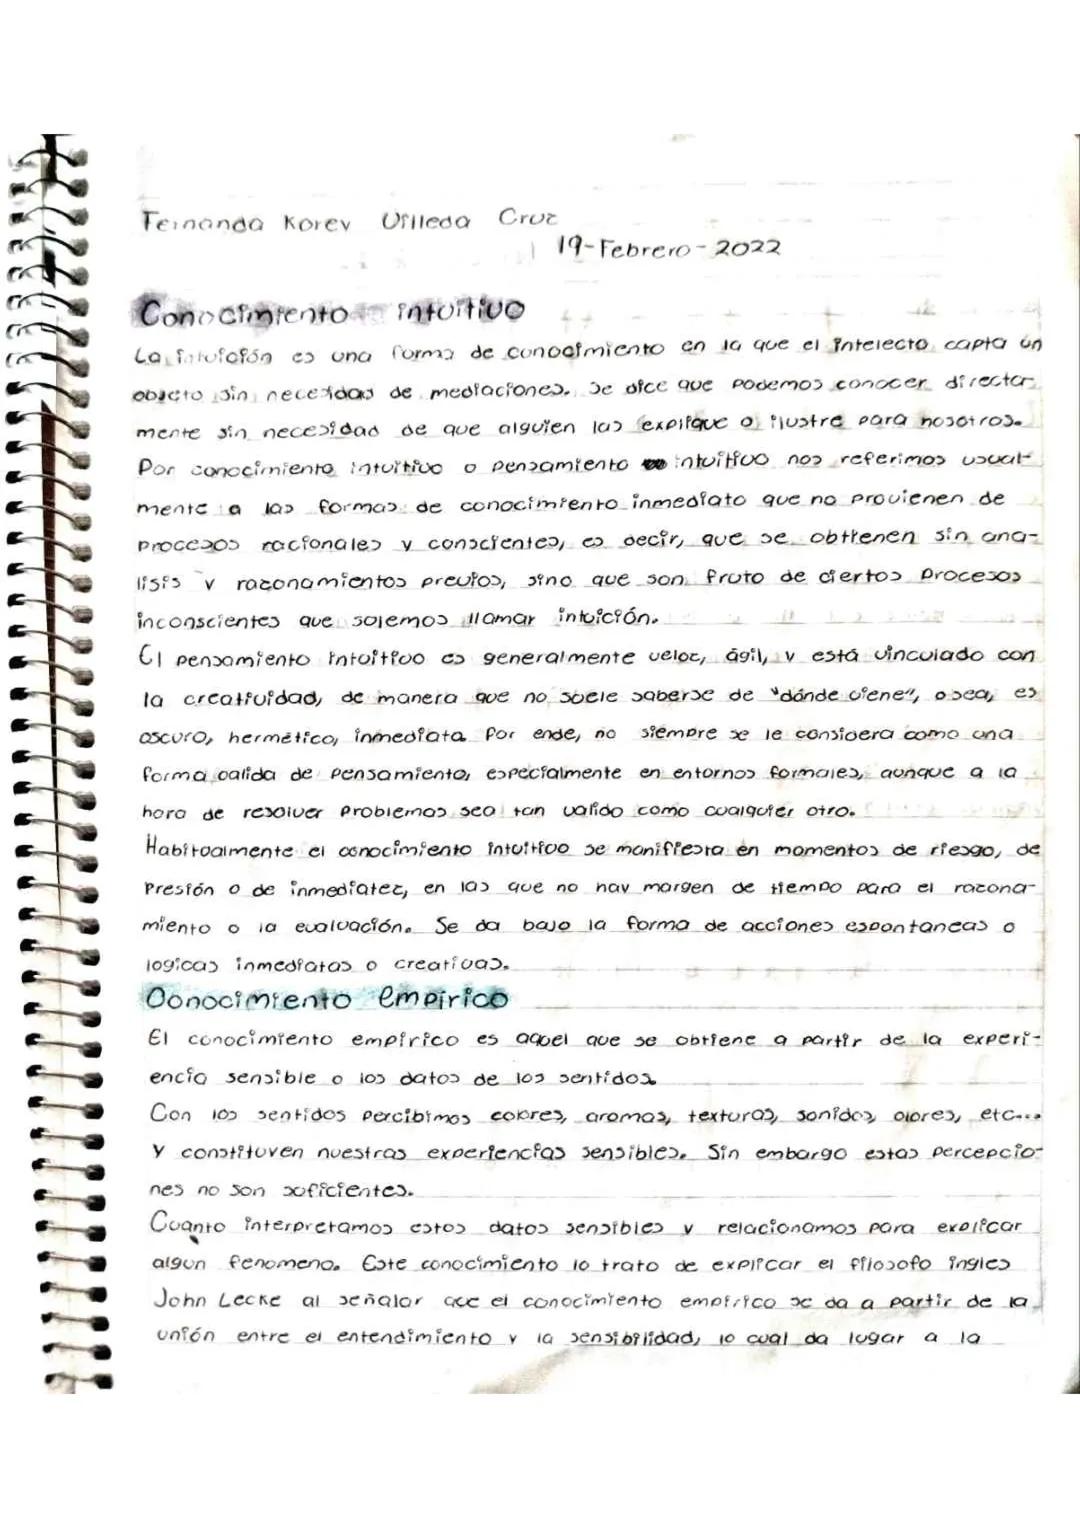 Fernanda Korev Villeda Cruz
19-Febrero-2022
Conocimiento intuitivo
La intuición es una forma de conocimiento en la que el intelecto capta un
objeto sin necesidad de mediaciones. Se dice que podemos conocer directa-
mente sin necesidad de que alguien las explique o ilustre para nosotros.
Por conocimiento intuitivo o pensamiento intuitivo nos referimos usual-
mente a las formas de conocimiento inmediato que no provienen de
procesos racionales y conscientes, es decir, que se obtienen sin ana-
lisis y razonamientos previos, sino que son fruto de ciertos procesos
inconscientes que solemos llamar intuición.
El pensamiento intuitivo es generalmente veloz, ágil, y está vinculado con
la creatividad, de manera que no suele saberse de "dónde viene", o sea, es
oscuro, hermético, inmediata. Por ende, no siempre se le considera como una
forma valida de pensamiento, especialmente en entornos formales, aunque a la
hora de resolver problemas sea tan valido como cualquier otro.
Habitualmente el conocimiento intuitivo se manifiesta en momentos de riesgo, de
presión o de inmediatez, en las que no hay margen de tiempo para el razona-
miento o la evaluación. Se da bajo la forma de acciones espontaneas o
logicas inmediatas o creativas.
Conocimiento empirico
El conocimiento empírico es aquel que se obtiene a partir de la experi-
encia sensible o los datos de los sentidos.
Con los sentidos percibimos colores, aromas, texturas, sonidos, olores, etc...
y constituyen nuestras experiencias sensibles. Sin embargo estas percepcio-
nes no son suficientes.
Cuanto interpretamos estos datos sensibles y relacionamos para explicar
algun fenomeno. Este conocimiento lo trato de explicar el filosofo ingles
John Lecke al señalar que el conocimiento empírico se da a partir de la
unión entre el entendimiento y la sensibilidad, lo cual da lugar a la